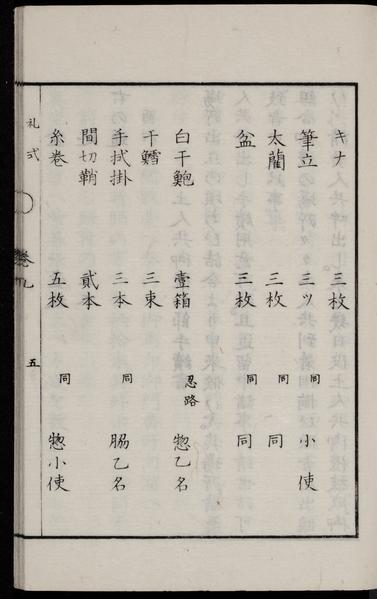 キナ 三枚
筆立 三ツ 同 小使
太藺 三枚 同 同
盆 三枚 同 同
白干鮑 壹箱 忍路 惣乙名
干鱈 三束
手拭掛 三本 同 脇乙名
間切鞘 貳本
糸巻 五枚 同 惣小使
礼式 巻九 五